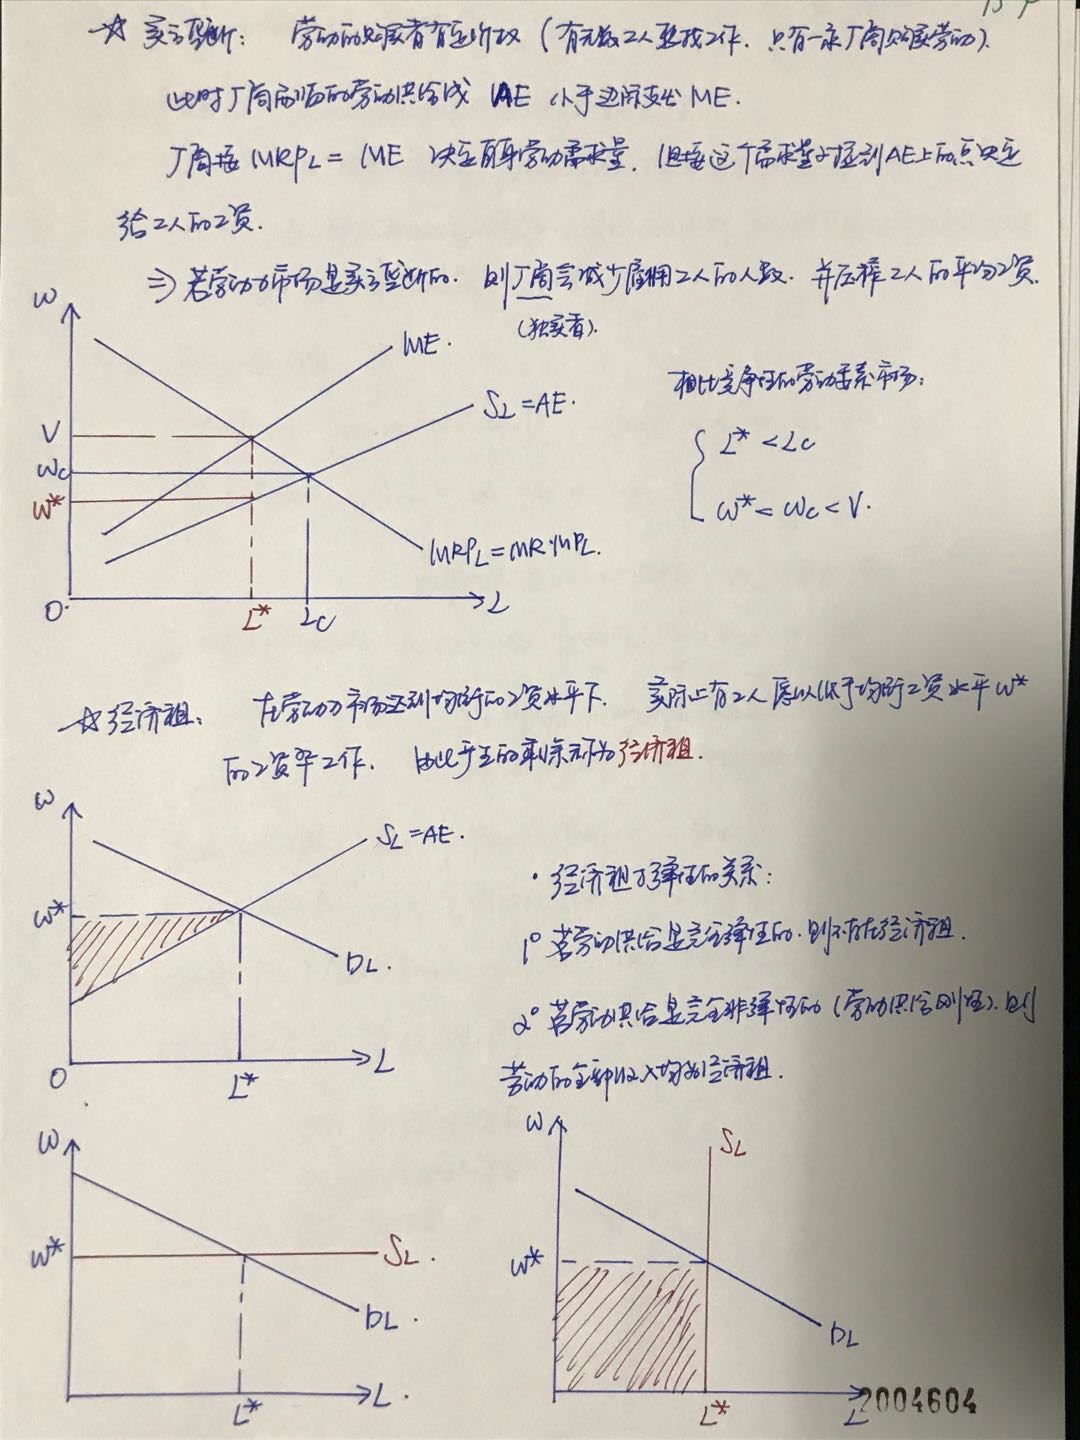 ☆ 买方垄断: 劳动的购买者有定价权 (有无数工人要找工作. 只有一家厂商购买劳动).
此时厂商面临的劳动供给线 AE 小于边际支出 ME.
厂商按 MRP_L = ME 决定自身劳动需求量. 但按这个需求量对应到AE上的点决定
给工人的工资.
⇒ 若劳动力市场是买方垄断的. 则厂商会减少雇佣工人的人数. 并压榨工人的平均工资.
(独买者).
w
ME.
相比竞争性的劳动要素市场:
S_L=AE.
V
L* < Lc
Wc
W*
W* < Wc < V.
MRP_L=MR·MP_L.
O
L*
Lc
L
☆ 经济租: 在劳动力市场达到均衡的工资水平下. 实际上有工人愿以低于均衡工资水平 W*
的工资率工作. 由此产生的剩余称为经济租.
w
S_L=AE.
· 经济租与弹性的关系:
W*
1° 若劳动供给是完全弹性的. 则不存在经济租.
D_L.
2° 若劳动供给是完全非弹性的 (劳动供给刚性). 则
O
L*
L
劳动的全部收入均为经济租.
w
W*
S_L.
D_L.
L*
L.
w
S_L
W*
D_L
L*
L
2004604